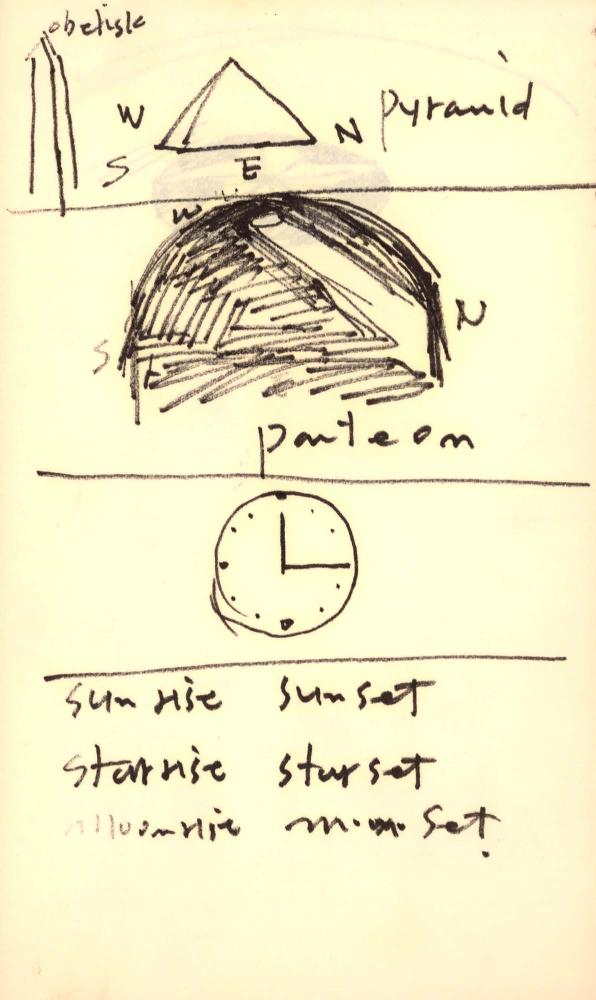 obelisk
W
N
pyramid
S
E
W
N
S
E
panteon
sunrise sunset
starrise starset
moonrise moonset